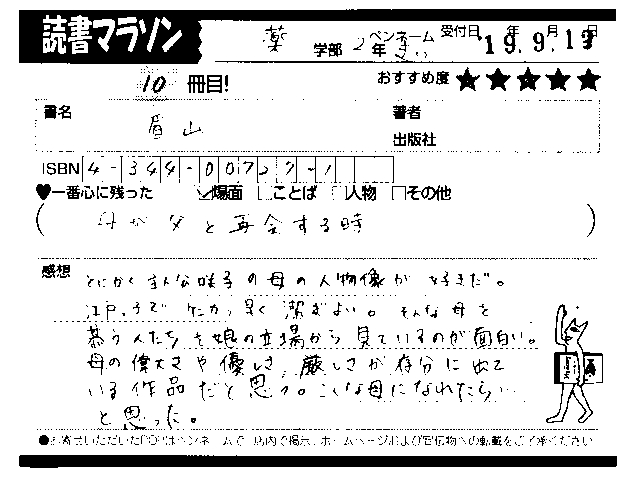 読書マラソン
薬 学部 2年 ペンネーム まい 受付日 '19年9月13日
10 冊目! おすすめ度 ★★★★★
書名 眉山 著者
出版社
ISBN 4-344-00727-1
♥一番心に残った ☑場面 □ことば □人物 □その他
(母が父と再会する時)
感想 とにかく主人公咲子の母の人物像が好きだ。
江戸っ子でケンカっ早く潔ぎよい。そんな母を
慕う人たちを娘の立場から見ているのが面白い。
母の偉大さや優しさ、厳しさが存分に出て
いる作品だと思う。こんな母になれたらいい
と思った。
●お寄せいただいたPOPはペンネームで、店内で掲示、ホームページおよび宣伝物への転載をご了承ください